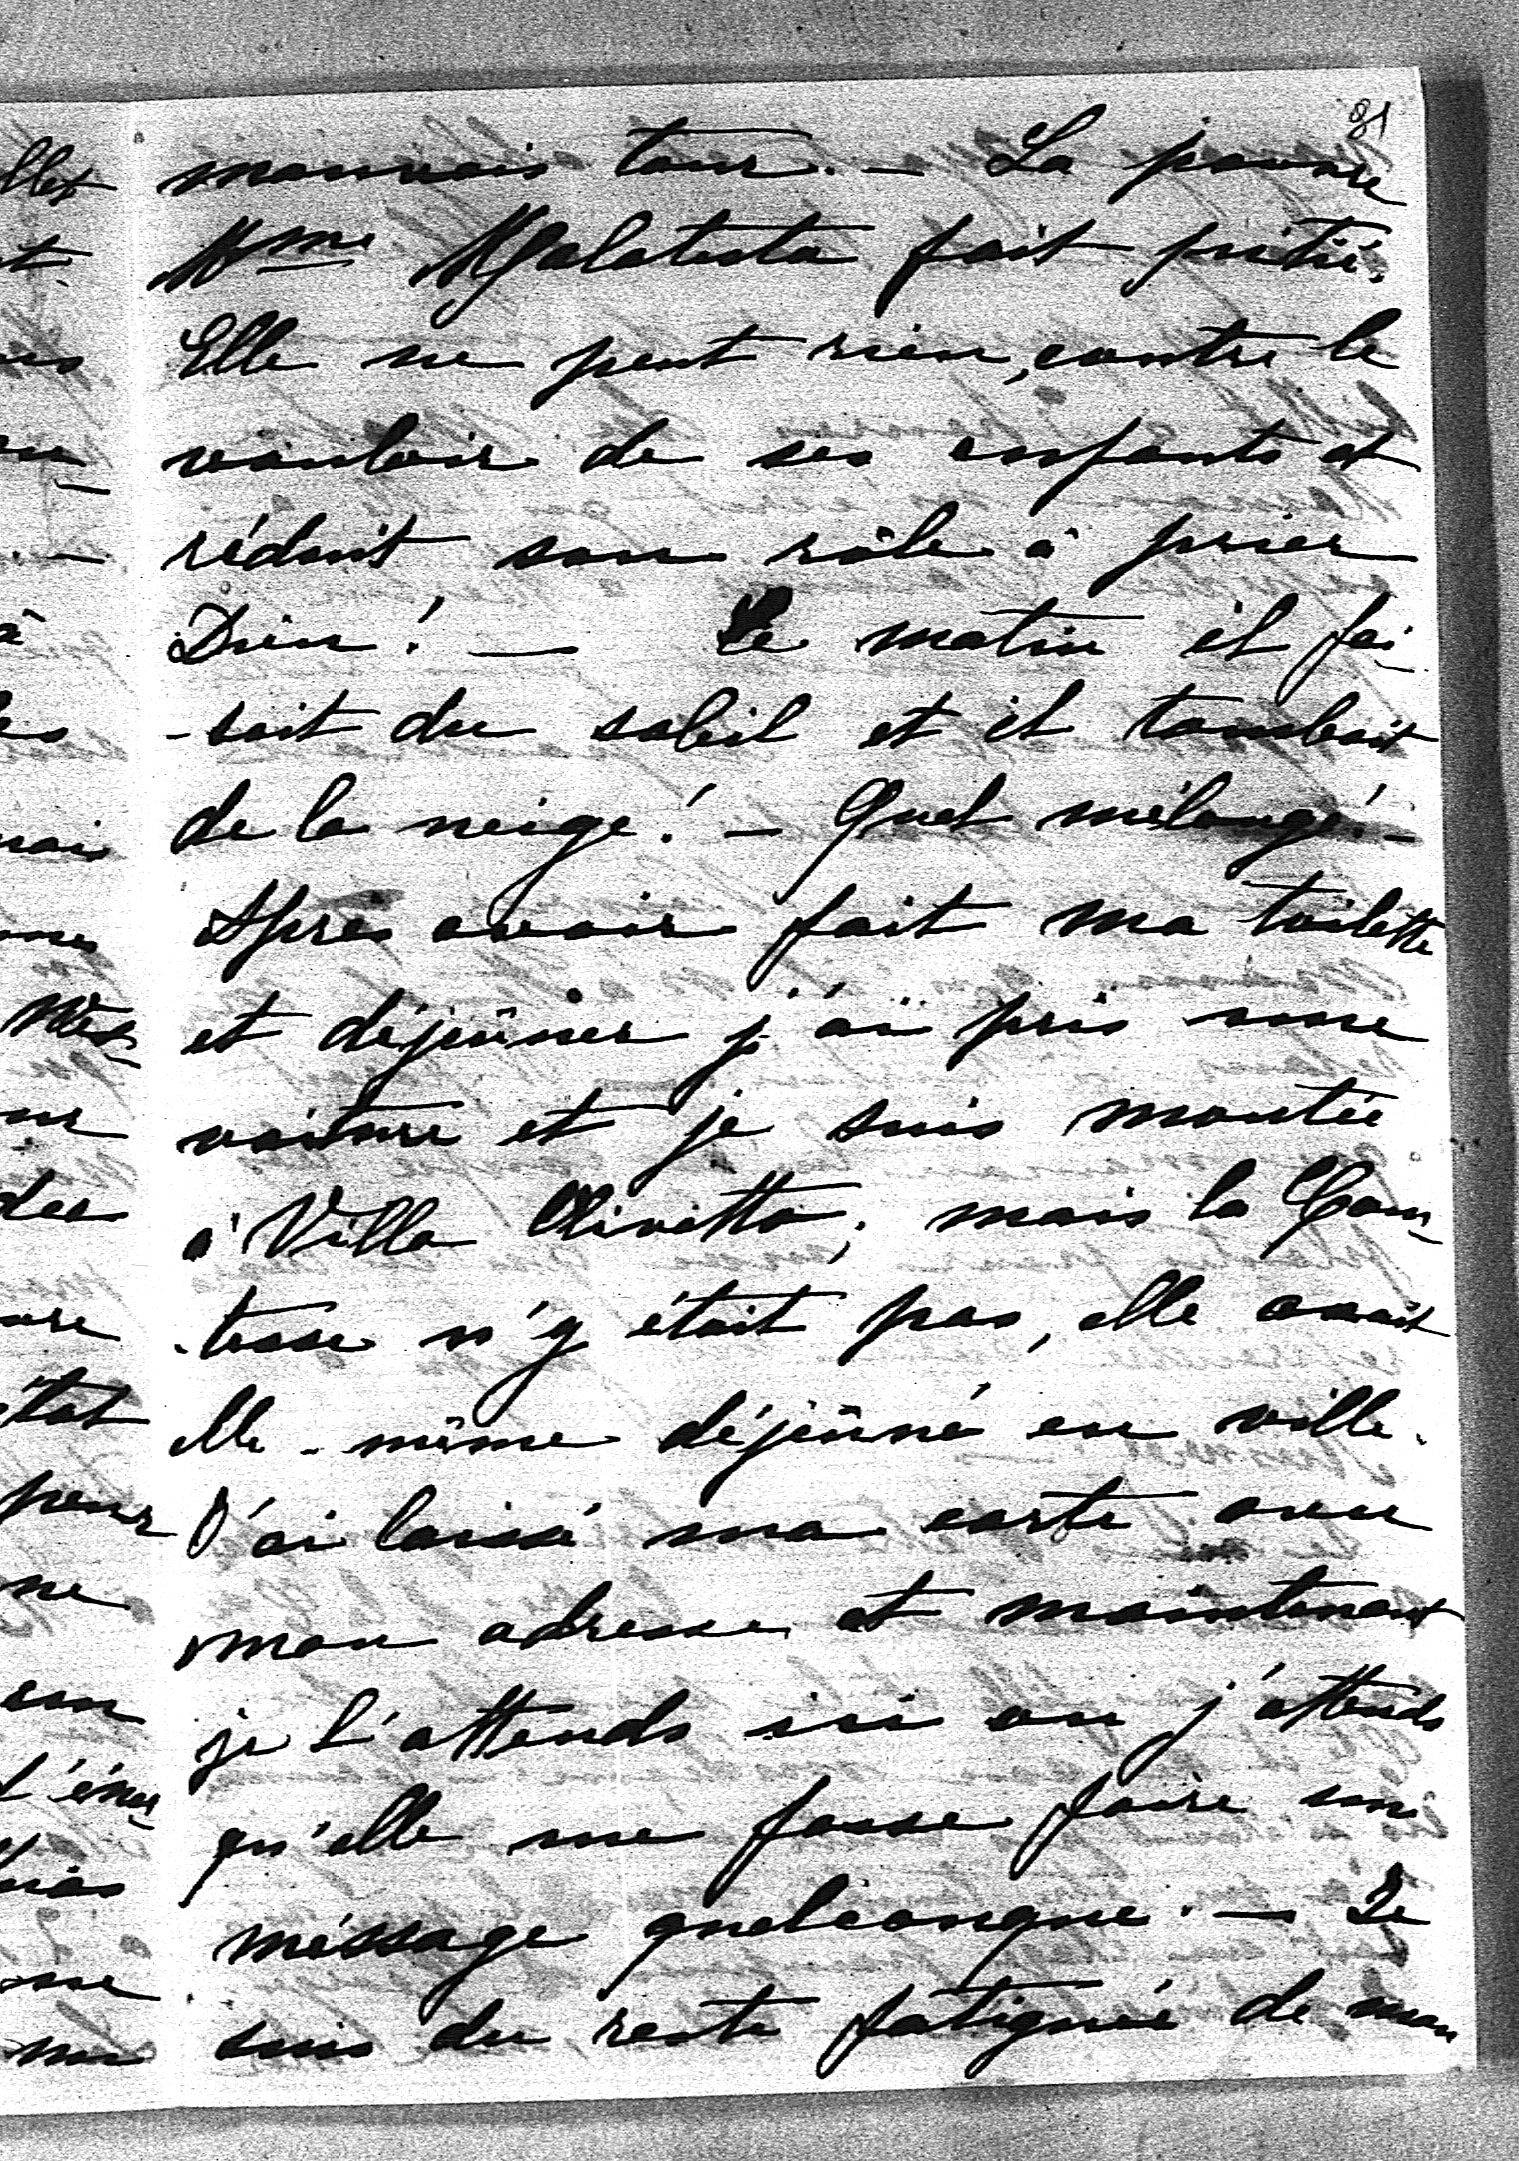 81
mauvais tour. — La pauvre
Mme Malatesta fait pitié.
Elle ne peut rien, contre le
vouloir de ses enfants et
réduit son rôle à prier
Dieu! — Le matin il fai-
-sait du soleil et il tombait
de la neige! — Quel mélange! —
Après avoir fait ma toilette
et déjeûner j'ai pris une
voiture et je suis montée
à Villa Olivetta; mais la Com-
-tesse n'y était pas, elle avait
elle-même déjeûné en ville.
J'ai laissé ma carte avec
mon adresse et maintenant
je l'attends ici ou j'attends
qu'elle me fasse faire un
méssage quelconque. — Je
suis du reste fatiguée de mon